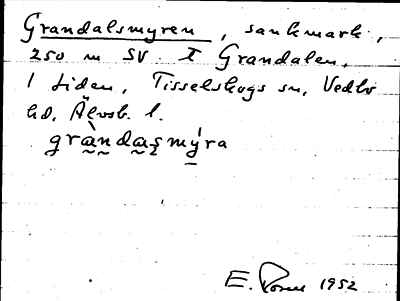 Grandalsmyren, sankmark,
250 m SV. I Grandalen,
1 Liden, Tisselskogs sn, Vedbo
hd, Älvsb. l.
gràndasmýra
E. 1952